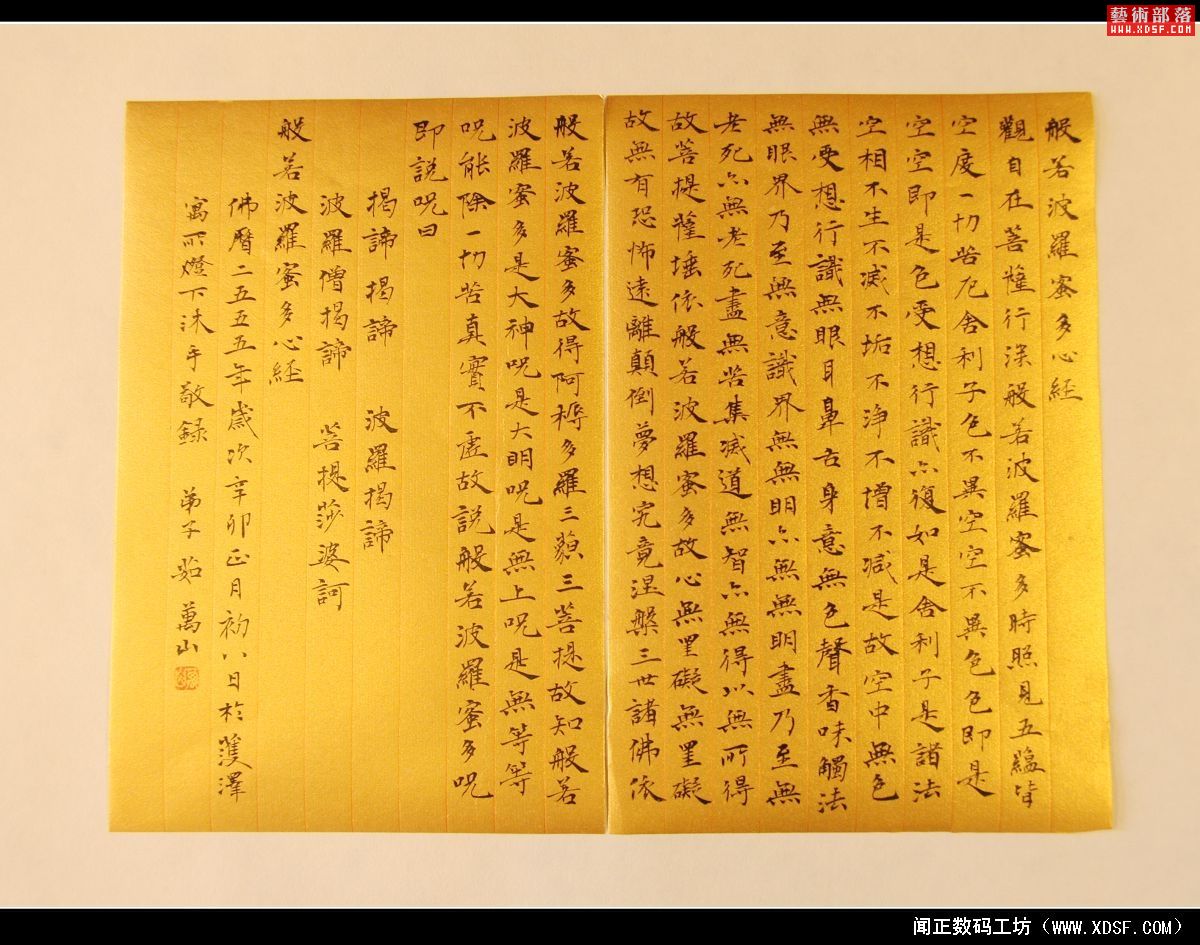 般若波羅蜜多心経
觀自在菩薩行深般若波羅蜜多時照見五蘊皆
空度一切苦厄舍利子色不異空空不異色色即是
空空即是色受想行識亦復如是舍利子是諸法
空相不生不滅不垢不淨不增不減是故空中無色
無受想行識無眼耳鼻舌身意無色聲香味觸法
無眼界乃至無意識界無無明亦無無明盡乃至無
老死亦無老死盡無苦集滅道無智亦無得以無所得
故菩提薩埵依般若波羅蜜多故心無罣礙無罣礙
故無有恐怖遠離顛倒夢想究竟涅槃三世諸佛依
般若波羅蜜多故得阿耨多羅三藐三菩提故知般若
波羅蜜多是大神呪是大明呪是無上呪是無等等
呪能除一切苦真實不虛故說般若波羅蜜多呪
即說呪曰
揭諦揭諦 波羅揭諦
波羅僧揭諦 菩提莎婆訶
般若波羅蜜多心経
佛曆二五五五年歲次辛卯正月初八日於濩澤
寓所燈下沐手敬錄 弟子 萬山
藝術部落
WWW.XDSF.COM
闻正数码工坊（WWW.XDSF.COM）